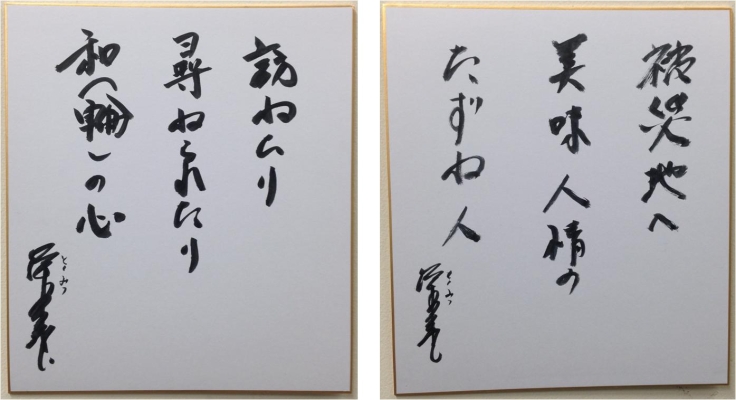 訪ねたり
尋ねられたり
和(輪)の心
被災地へ
美味人情の
たずね人